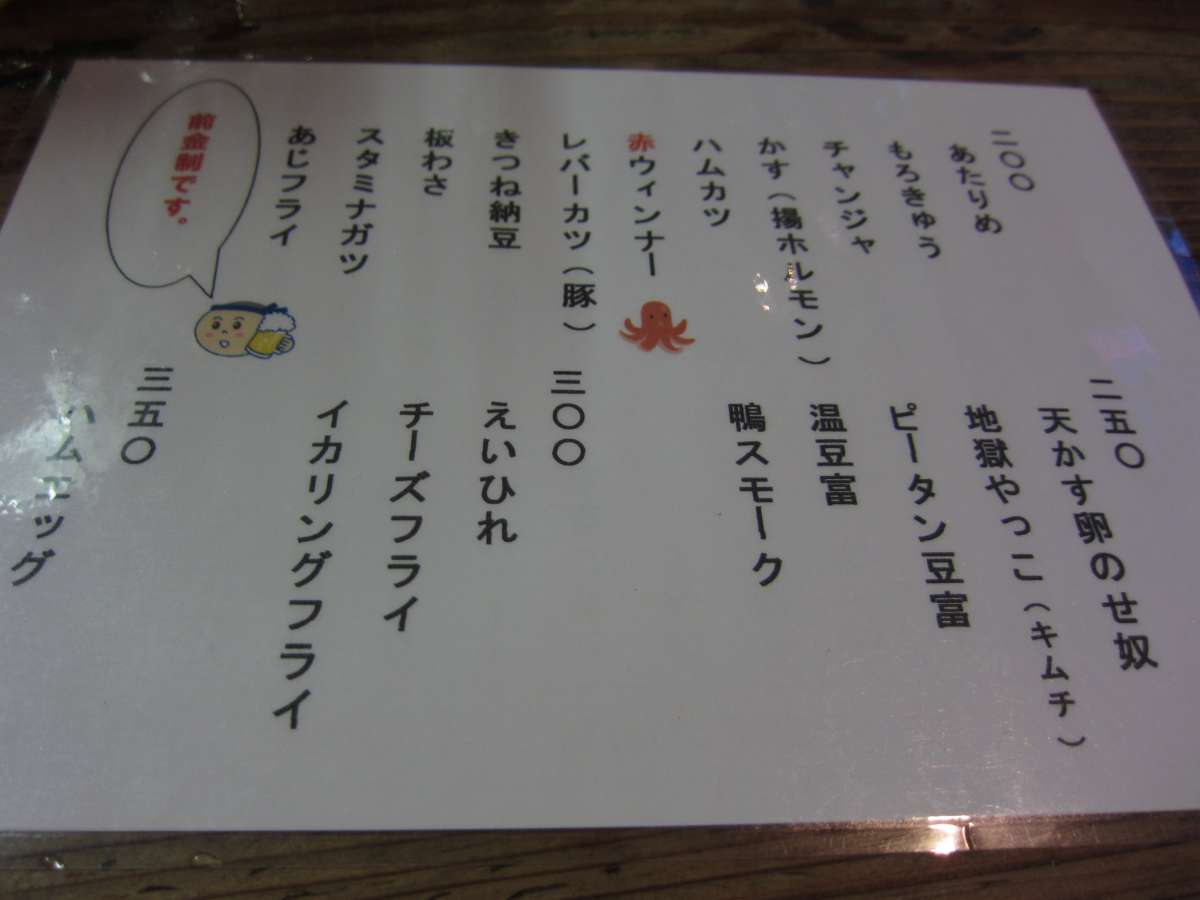 二〇〇
あたりめ
もろきゅう
チャンジャ
かす（揚ホルモン）
ハムカツ
赤ウィンナー
レバーカツ（豚）
きつね納豆
板わさ
スタミナガツ
あじフライ
前金制です。
二五〇
天かす卵のせ奴
地獄やっこ（キムチ）
ピータン豆富
温豆富
鴨スモーク
三〇〇
えいひれ
チーズフライ
イカリングフライ
三五〇
ハムエッグ